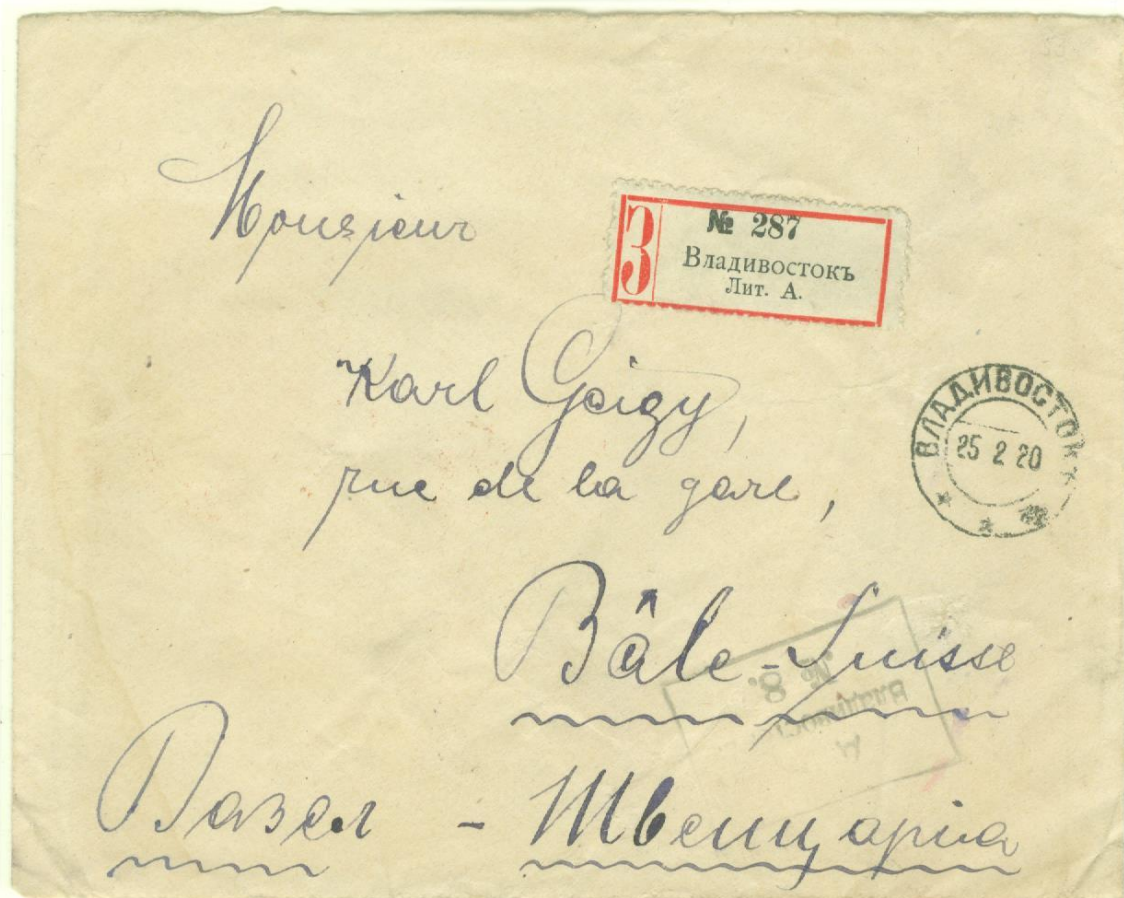 Monsieur
3
№ 287
Владивостокъ
Лит. А.
Karl Geigy,
rue de la gare,
ВЛАДИВОСТОКЪ
25 2 20
Bâle-Suisse
№ 8.
Базел - Швеицаріа